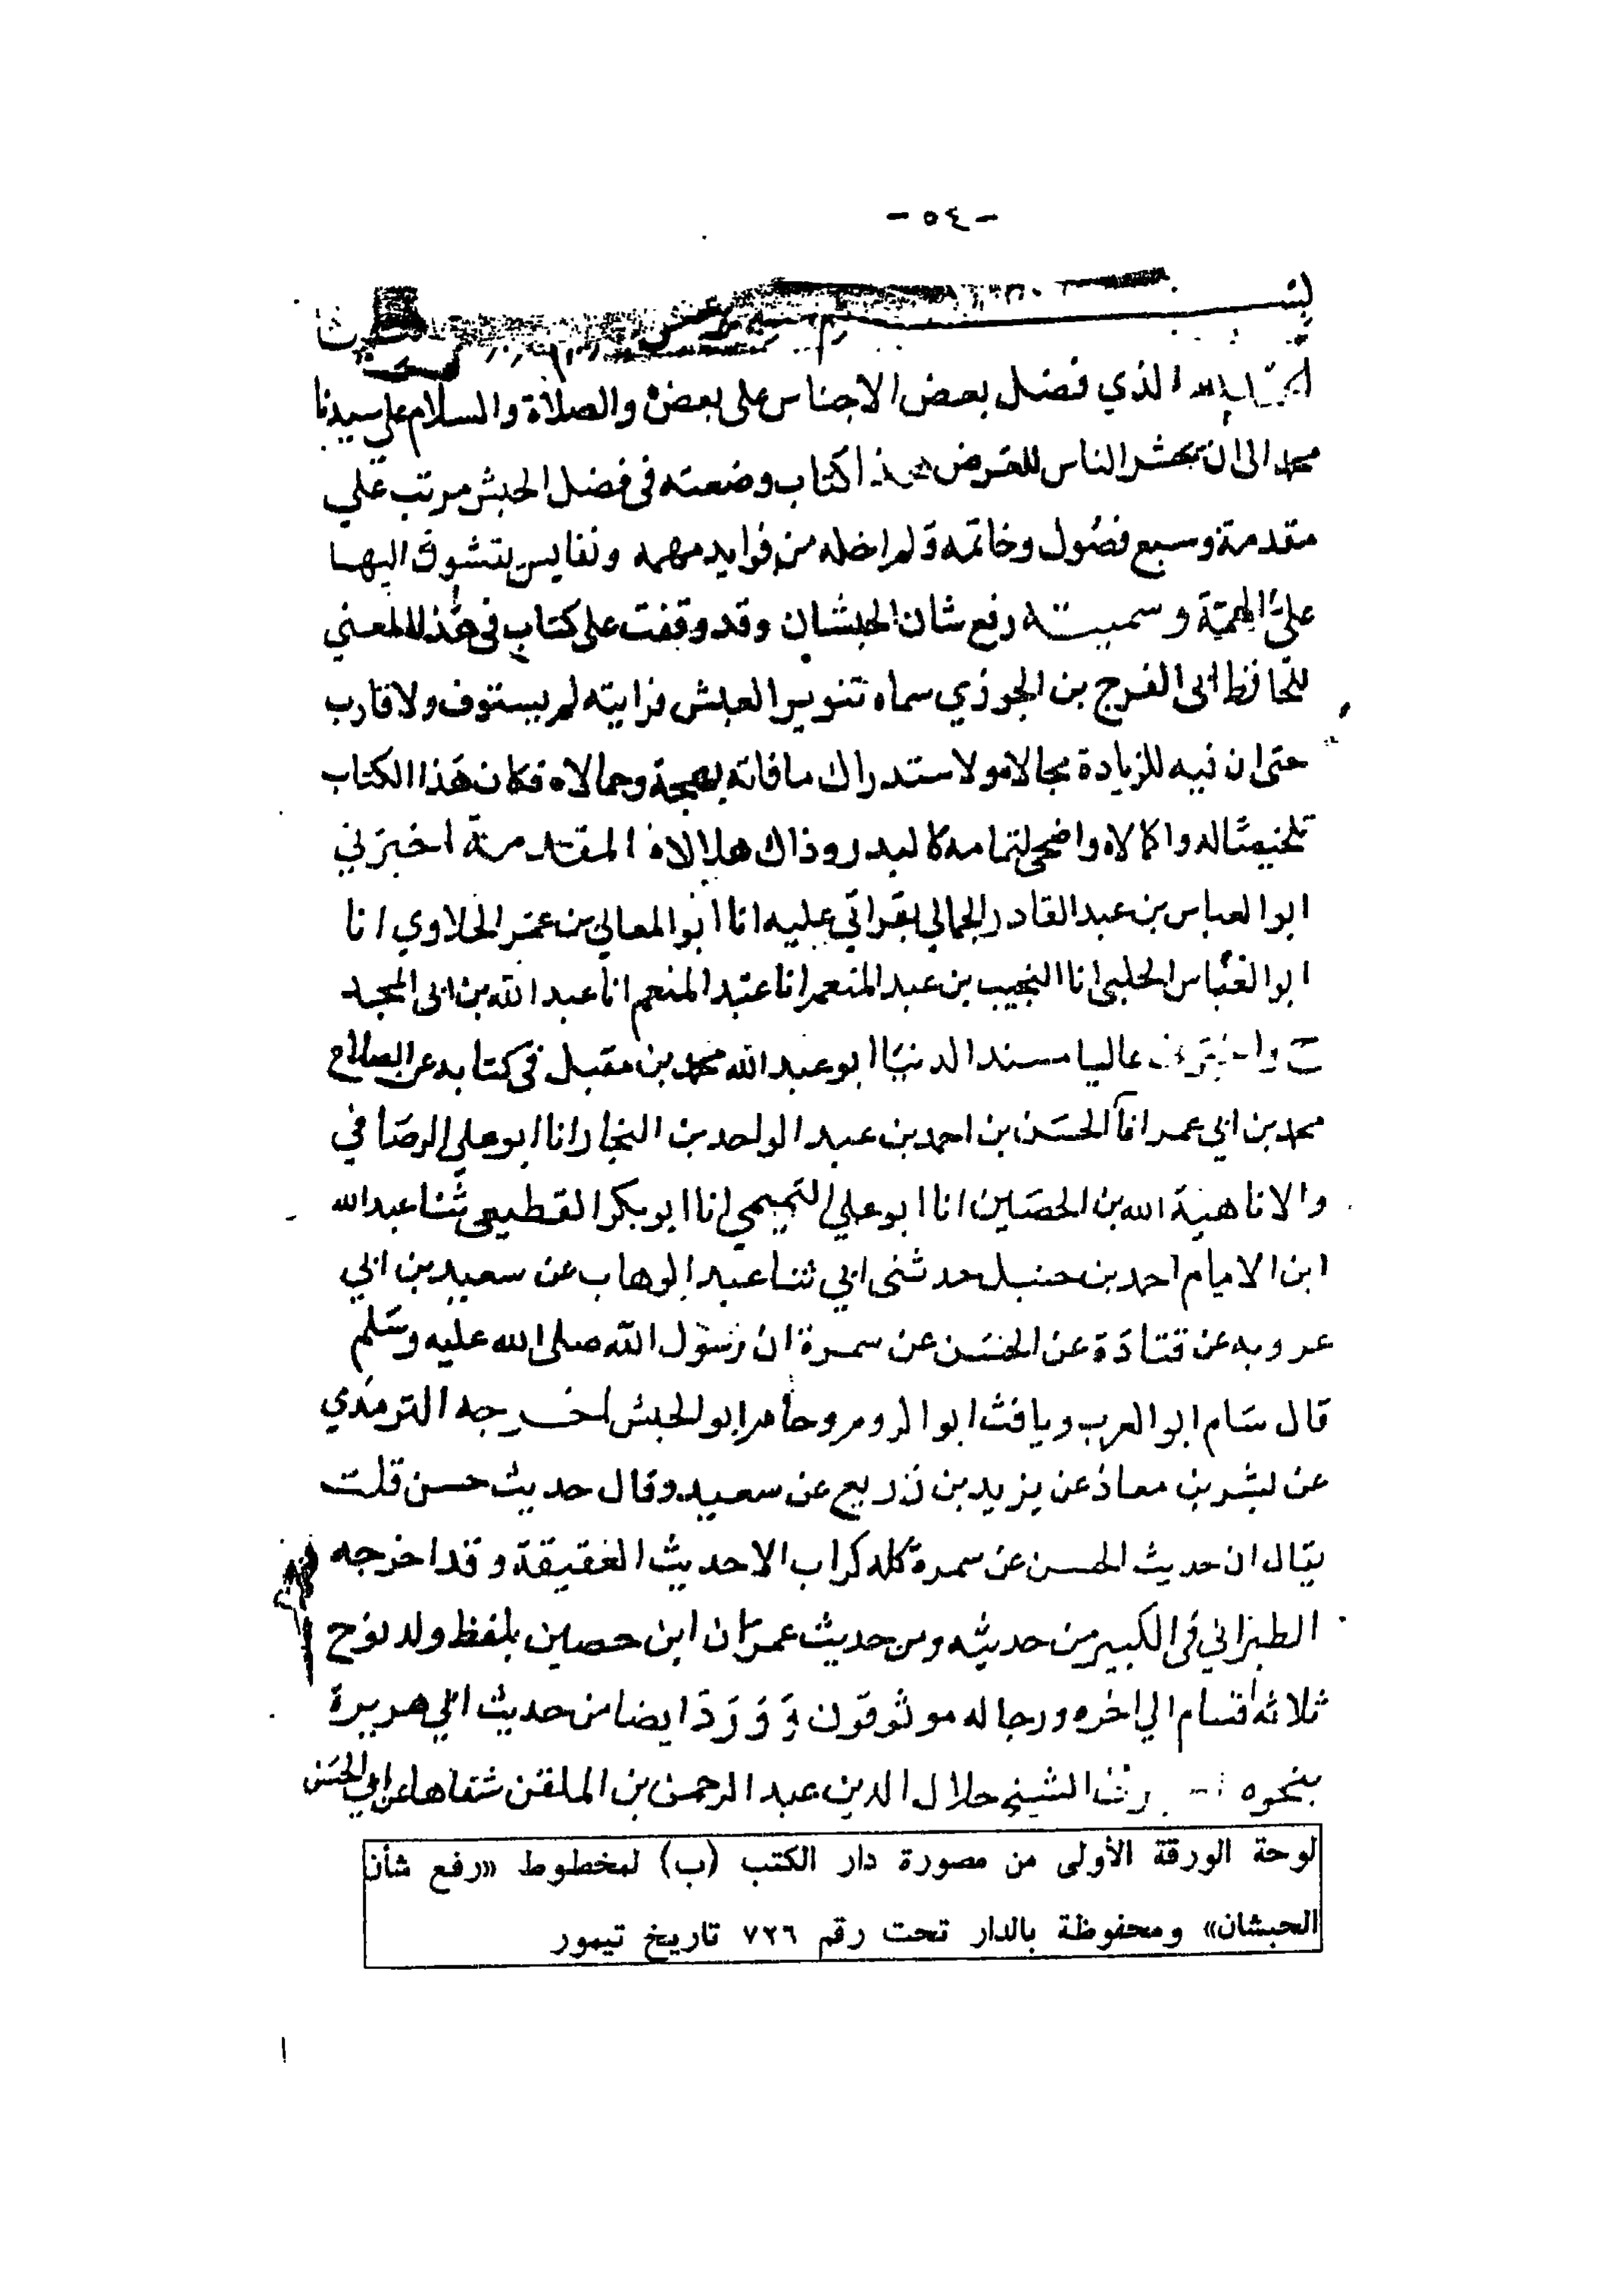 - ٥٤ -
بسـ
الذي فضل بعض الاجناس على بعض والصلاة والسلام على سيدنا
محمد الى ان يحشر الناس للعرض هذا كتاب وضعته في فضل الحبش مرتب علي
مقدمة وسبع فصول وخاتمه ولم اخله من فوايد مهمه ونفايس يتشوف اليها
علىّ الهمّة وسميته رفع شان الحبشان وقد وقفت على كتاب في هذا المعني
للحافظ ابى الفرج بن الجوزي سماه تنوير الغبش فرايته لم يستوف ولا قارب
حتى ان فيه للزيادة مجالا ولاستدراك ما فاته بهجة وجمالا فكان هذا الكتاب
تلخيصًا له واكمالا واضحى لتمامه كالبدر وذاك هلالا المقدمة اخبرني
ابو العباس بن عبد القادر الجمالي بقراتي عليه انا ابو المعالي بن عمر الحلاوي انا
ابو العباس الحلبى انا النجيب بن عبد المنعم انا عبد المنعم انا عبد الله بن ابى المجد
ح واخبرني عاليا مسند الدنيا ابو عبد الله محمد بن مقبل في كتابه عن الصلاح
محمد بن ابي عمر انا الحسن بن احمد بن عبد الواحد بن النجار انا ابو على الرصافي
والانا هبة الله بن الحصين انا ابو علي التميمي انا ابو بكر القطيعى ثنا عبد الله
ابن الامام احمد بن حنبل حدثنى ابي ثنا عبد الوهاب عن سعيد بن ابي
عروبه عن قتادة عن الحسن عن سمرة ان رسول الله صلى الله عليه وسلم
قال سام ابو العرب ويافث ابو الروم وحام ابو الحبش اخرجه الترمذي
عن بشر بن معاذ عن يزيد بن زريع عن سعيد وقال حديث حسن قلت
يقال ان حديث الحسن عن سمرة كله كراب الا حديث العقيقة وقد اخرجه
الطبراني فى الكبير من حديثه ومن حديث عمران ابن حصين بلفظ ولد نوح
ثلاثه اقسام الي اخره ورجاله موثوقون وورد ايضا من حديث ابي هريرة
بنحوه الشيخ جلال الدين عبد الرحمن بن الملقن شفاها عن ابي الحسن
لوحة الورقة الأولى من مصورة دار الكتب (ب) لمخطوط «رفع شأن
الحبشان» ومحفوظة بالدار تحت رقم ٧٢٦ تاريخ تيمور